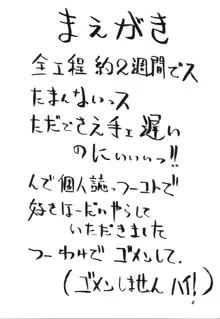 まえがき
全工程 約2週間でス
たまんないっス
ただでさえ手ェ遅い
のにぃぃぃっ!!
んで個人誌っつーコトで
好きほーだいやらして
いただきました
つーわけで ゴメンして.
(ゴメンしません ハイ!)